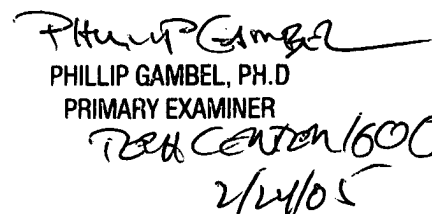 Phillip Gambel
PHILLIP GAMBEL, PH.D
PRIMARY EXAMINER
TECH CENTER 1600
2/24/05